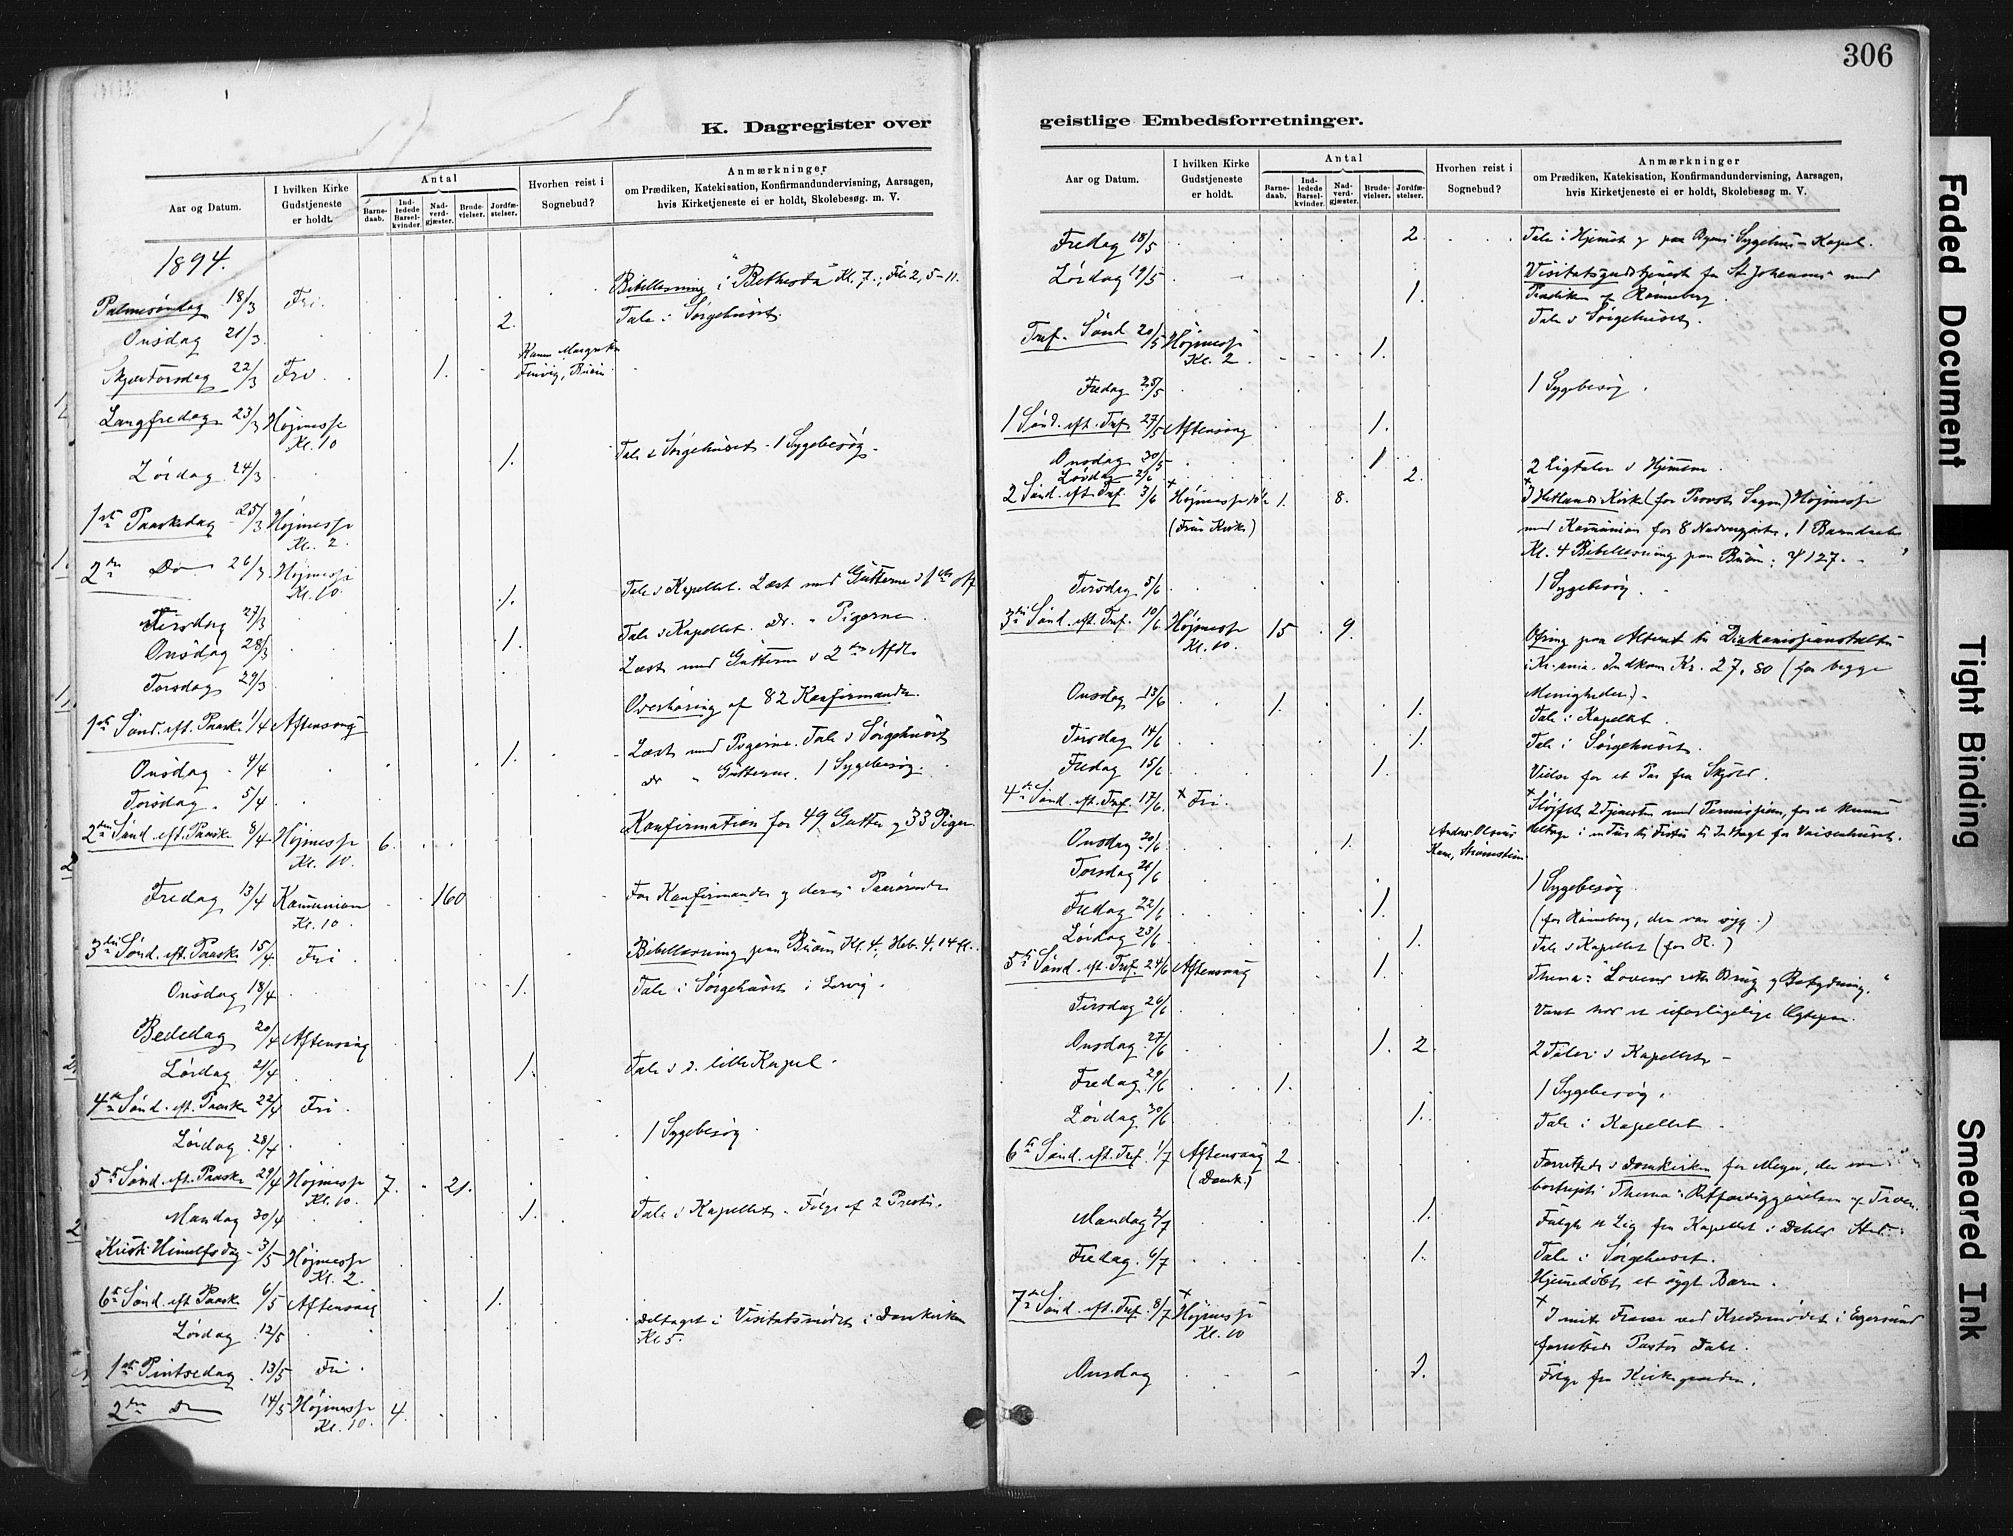 306
K. Dagregister over
Aar og Datum.
I hvilken Kirke Gudstjeneste er holdt.
Antal
Barne-daab.
Ind-ledede Barsel-kvinder.
Nad-verd-gjæster.
Brude-vielser.
Jordfæ-stelser.
Hvorhen reist i Sognebud?
Anmærkninger
om Prædiken, Katekisation, Konfirmandundervisning, Aarsagen,
hvis Kirketjeneste ei er holdt, Skolebesøg. m. V.
1894.
Palmesøndag 18/3 Fri. Bibellæsning i "Bethesda" Kl. 7. ; Fil. 2, 5-11.
Onsdag 21/3 2. Tale i Sørgehuset.
Skjærtorsdag 22/3 Fri 1.
Langfredag 23/3 Højmesse
Kl. 10
Lørdag 24/3 1. Tale i Sørgehuset. 1 Sygebesøg.
1ste Paaskedag 25/3 Højmesse
Kl. 2.
2den Do 26/3 Højmesse
Kl. 10.
Tirsdag 27/3 1. Tale i Kapellet. Læst med Gutterne i 1ste Afd.
Onsdag 28/3 1. Tale i Kapellet. Do. " Pigerne.
Torsdag 29/3 Læst med Gutterne i 2den Afdl.
1ste Sønd. eft. Paaske 1/4 Aftensang Overhøring af 82 Konfirmander.
Onsdag 4/4 1. Læst med Pigerne. Tale i Sørgehuset
Torsdag 5/4 do " Gutterne. 1 Sygebesøg.
2den Sønd. eft. Paaske 8/4 Højmesse 6. Konfirmation for 49 Gutter og 33 Piger
Kl. 10.
Fredag 13/4 Kommunion 160. For Konfirmander og deres Paarørende
Kl. 10.
3die Sønd. eft. Paaske 15/4 Fri Bibellæsning paa Buøen Kl. 4; Heb. 4. 14 fl.
Onsdag 18/4 1. Tale i Sørgehuset i Lervig.
Bededag 20/4 Aftensang
Lørdag 21/4 1. Tale i d. lille Kapel.
4de Sønd. eft. Paaske 22/4 Fri.
Lørdag 28/4 1 Sygebesøg
5te Sønd. eft. Paaske 29/4 Højmesse 7. 21.
Kl. 10
Mandag 30/4 1. Tale i Kapellet. Følge af 2 Prester.
Kristi Himelfsdag 3/5 Højmesse
Kl. 2.
6te Sønd. eft. Paaske 6/5 Aftensang 1.
Lørdag 12/5 Deltaget i Visitatsmødet i Domkirken
Kl 5.
1ste Pintsedag 13/5 Fri.
2den Do 14/5 Højmesse 4.
Kl. 10.
geistlige Embedsforretninger.
Aar og Datum.
I hvilken Kirke Gudstjeneste er holdt.
Antal
Barne-daab.
Ind-ledede Barsel-kvinder.
Nad-verd-gjæster.
Brude-vielser.
Jordfæ-stelser.
Hvorhen reist i Sognebud?
Anmærkninger
om Prædiken, Katekisation, Konfirmandundervisning, Aarsagen,
hvis Kirketjeneste ei er holdt, Skolebesøg. m. V.
Fredag 18/5 2. Tale i Hjemmet og paa Byens Sygehus-Kapel.
Lørdag 19/5 1. Visitatsgudstjeneste for St Johannes med
Prædiken af Rønneberg.
Tale i Sørgehuset.
Tref. Sønd 20/5 Højmesse 1.
Kl. 2.
Fredag 25/5 1 Sygebesøg.
1 Sønd. eft. Tref. 27/5 Aftensang 1.
Onsdag 30/5 1
Lørdag 2/6 2. 2 Ligtaler i Hjemmene.
2 Sønd. eft. Tref. 3/6 Højmesse 1. 8. I Hetlands Kirke (for Provst) Højmesse
(Frue Kirke) med Kommunion for 8 Nadvergjester, 1 Barnedaab.
Kl. 4 Bibellæsning paa Buøen: 127.
Tirsdag 5/6 1 Sygebesøg.
3die Sønd. eft. Tref. 10/6 Højmesse 15 9. Ofring paa Alteret til Diakonisseanstalten
Kl. 10. i Kr.ania. Indkom Kr. 27,80 (for begge
Menigheder).
Onsdag 13/6 1. 1. Tale i Kapellet.
Torsdag 14/6 1. Tale i Sørgehuset.
Fredag 15/6 1. Vielse for et Par fra Skjold.
4de Sønd. eft. Tref. 17/6 + Fri.
Onsdag 20/6 1.
Torsdag 21/6 1 Sygebesøg
Fredag 22/6 1. (for Rønneberg, der var syg.)
Lørdag 23/6 1. Tale i Kapellet (for R.)
5te Sønd. eft. Tref. 24/6 Aftensang 1. Thema: "Lovens rette Brug og Betydning."
Tirsdag 26/6
Onsdag 27/6 1. 2. 2 Taler i Kapellet
Fredag 29/6 1. 1 Sygebesøg.
Lørdag 30/6 1. Tale i Kapellet
6te Sønd. eft. Tref. 1/7 Aftensang 2. Forrettede i Domkirken for Meyer, der var
(Domk.) bortrejst. Thema: Retfærdiggjørelsen af Troen.
Mandag 2/7 1. Fulgte et Lig fra Kapellet i Dahls Sted.
Fredag 6/7 1. Tale i Sørgehuset.
Hjemmedøbt et sygt Barn.
7de Sønd. eft. Tref. 8/7 Højmesse + I mit Fravær ved Kredsmødet i Egersund
Kl. 10 forrettede Pastor Dahl.
Onsdag Følge fra Kirkegaarden.
Faded Document
Tight Binding
Smeared Ink